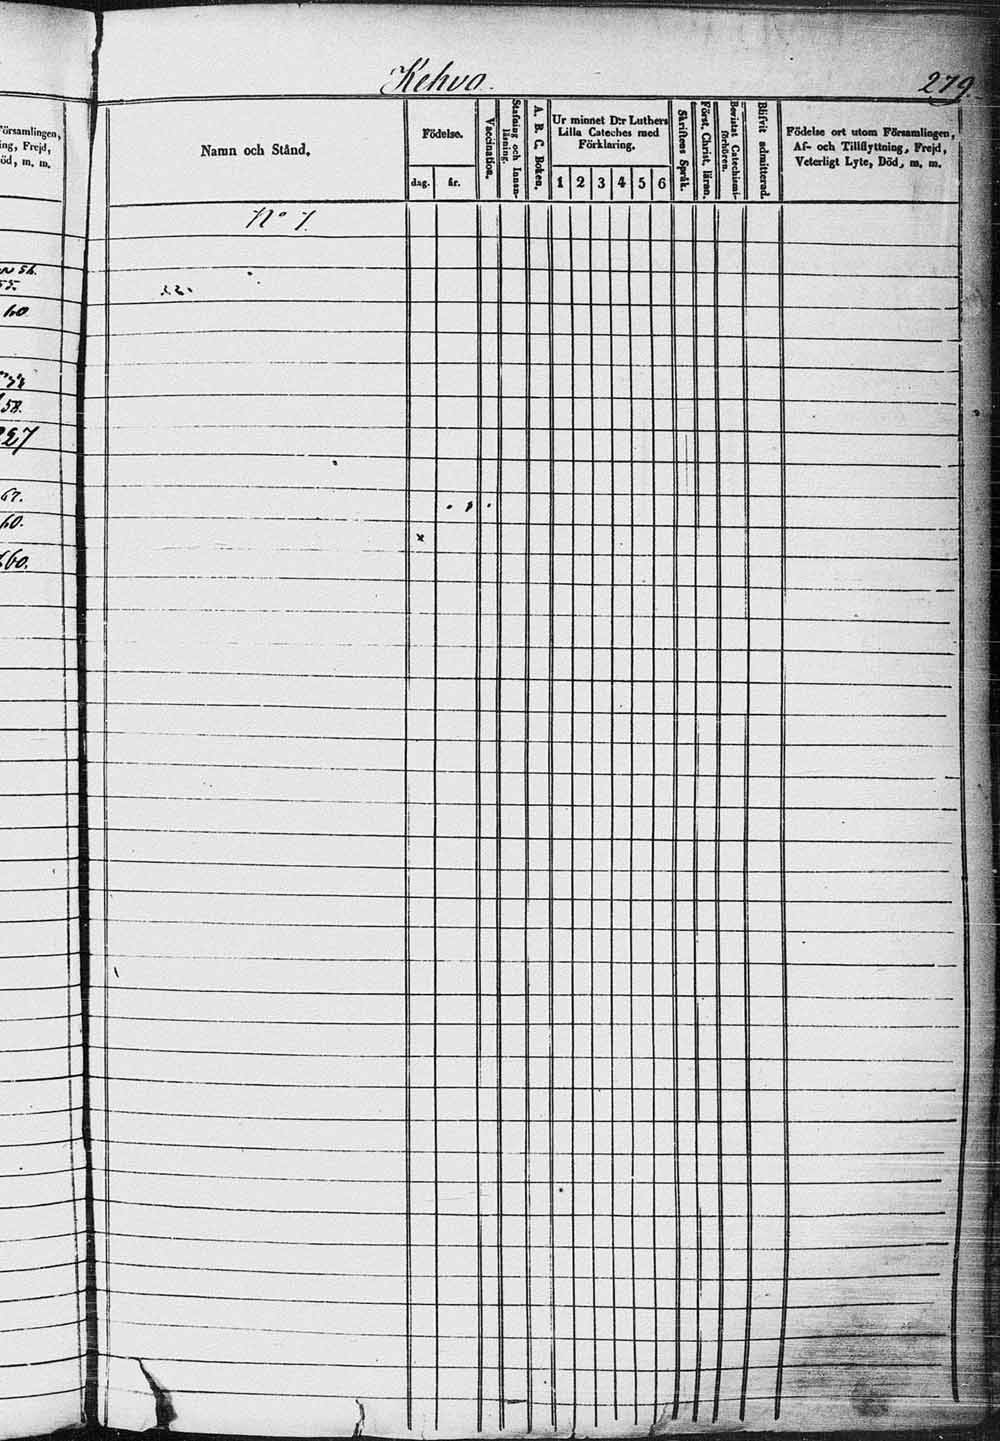 Kehvo. 279.
Församlingen,
ing, Frejd,
öd, m. m.
55.
60
58.
227
67.
60.
660.
Namn och Stånd.
Födelse.
dag. år.
Vaccination.
Stafning och Innan-
läsning.
A. B. C. Boken.
Ur minnet D:r Luthers
Lilla Cateches med
Förklaring.
1 2 3 4 5 6
Skriftens Språk.
Först. Christ. läran.
Bevistat Catechismi-
förhören.
Blifvit admitterad.
Födelse ort utom Församlingen,
Af- och Tillflyttning, Frejd,
Veterligt Lyte, Död, m. m.
No 7.